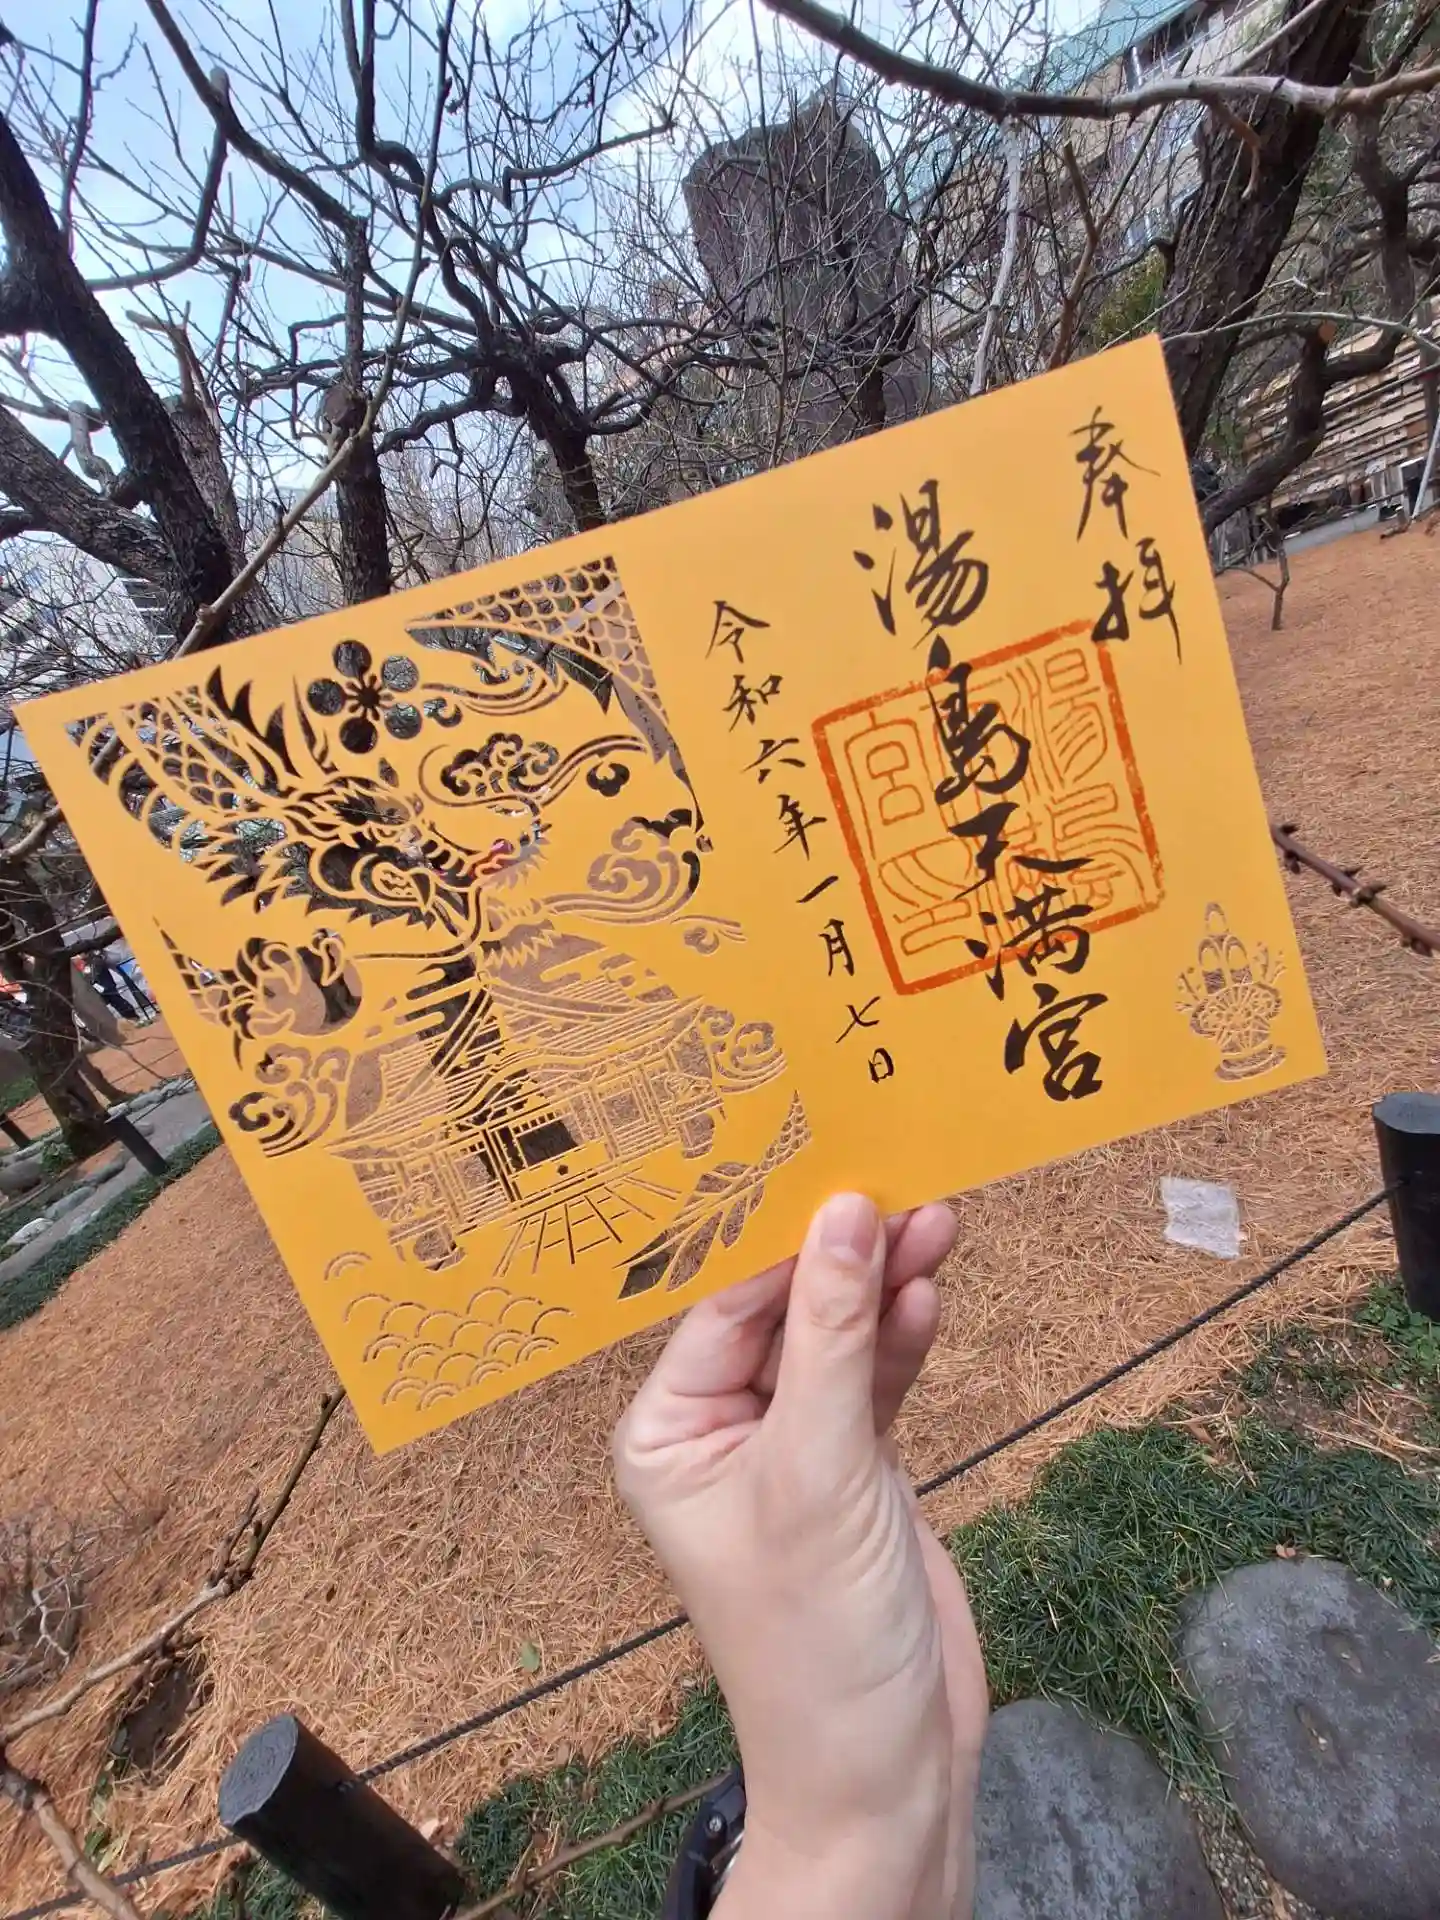 奉拝
湯島天満宮
湯島天満宮印
令和六年一月七日